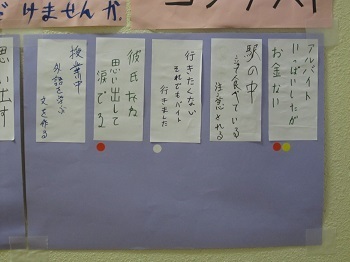 だけませんか.
コンテスト
アルバイト
いっぱいしたが
お金ない
駅の中
食べている
注意される
行きたくない
それでもバイト
行きました
彼氏
思い出して
涙でる
授業中
外語を学ぶ
文を作る
思い出す